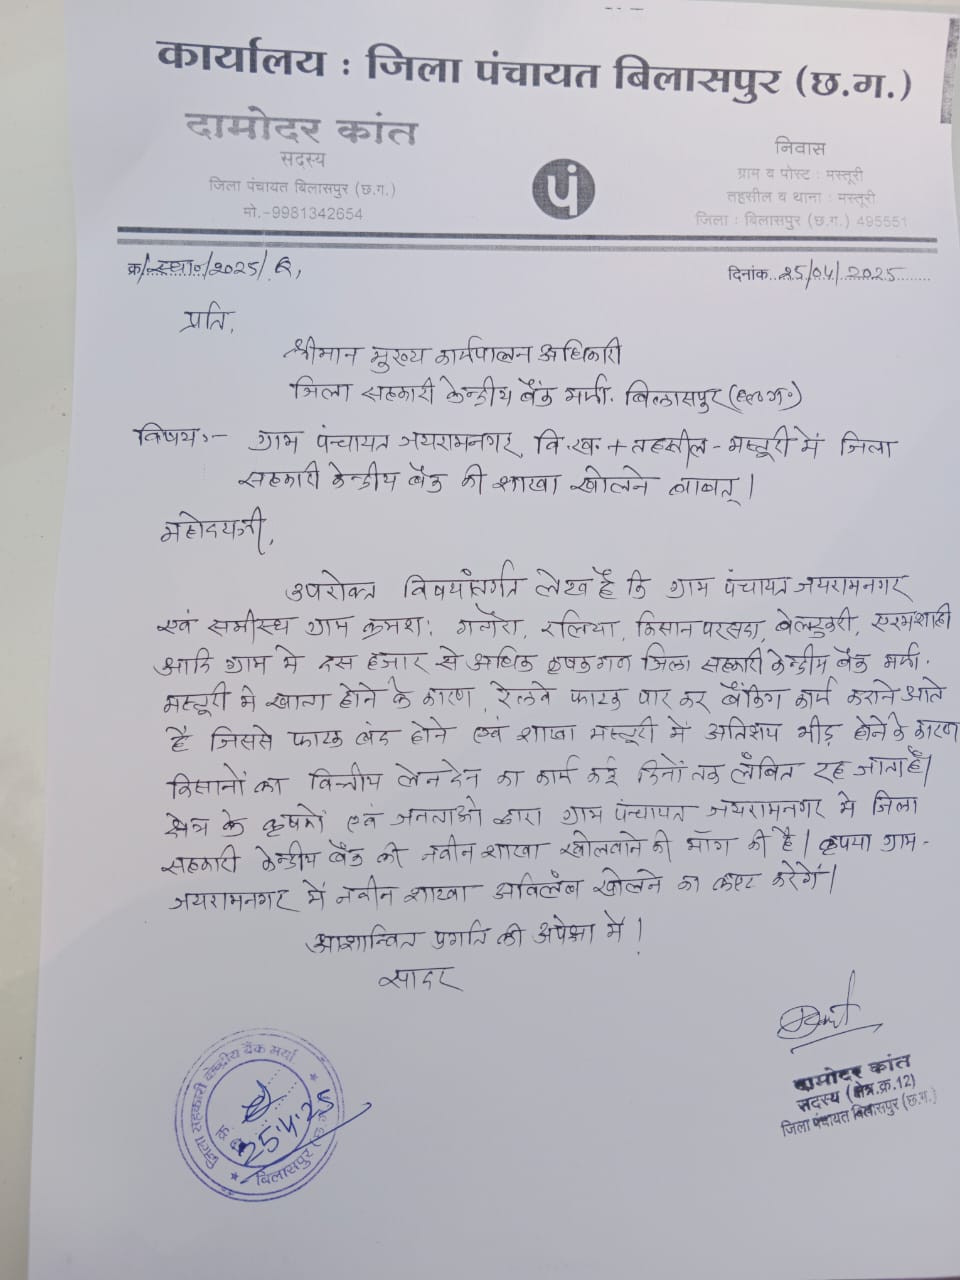 कार्यालय : जिला पंचायत बिलासपुर (छ.ग.)
दामोदर कांत
सदस्य
जिला पंचायत बिलासपुर (छ.ग.)
मो.-9981342654
पं
निवास
ग्राम व पोस्ट : मस्तूरी
तहसील व थाना : मस्तूरी
जिला : बिलासपुर (छ.ग.) 495551
क्र/स्था०/2025/
दिनांक 25/04/2025
प्रति,
श्रीमान मुख्य कार्यपालन अधिकारी
जिला सहकारी केन्द्रीय बैंक मर्या. बिलासपुर (छ०ग०)
विषय:- ग्राम पंचायत जयरामनगर, वि.ख. + तहसील - मस्तूरी में जिला
सहकारी केन्द्रीय बैंक की शाखा खोलने बाबत् ।
महोदयजी,
उपरोक्त विषयांतर्गत लेख है कि ग्राम पंचायत जयरामनगर
एवं समीस्थ ग्राम क्रमश: गतौरा, रलिया, किसान परसदा, बेलटुकरी, एरमशाही
आदि ग्राम मे दस हजार से अधिक कृषकगन जिला सहकारी केन्द्रीय बैंक मर्या.
मस्तूरी मे खाता होने के कारण, रेलवे फाटक पार कर बैंकिंग कार्य कराने आते
हैं जिससे फाटक बंद होने एवं शाखा मस्तूरी में अतिशय भीड़ होने के कारण
किसानों का वित्तीय लेनदेन का कार्य कई दिनों तक लंबित रह जाता है।
क्षेत्र के कृषकों एवं जनताओ द्वारा ग्राम पंचायत जयरामनगर मे जिला
सहकारी केन्द्रीय बैंक की नवीन शाखा खोलवाने की मॉग की है। कृपया ग्राम-
जयरामनगर में नवीन शाखा अविलंब खोलने का कष्ट करेगें।
आशान्वित प्रगति की अपेक्षा में।
सादर
दामोदर कांत
सदस्य (क्षेत्र.क्र.12)
जिला पंचायत बिलासपुर (छ.ग.)
जिला सहकारी केन्द्रीय बैंक मर्या
25.4.25
बिलासपुर